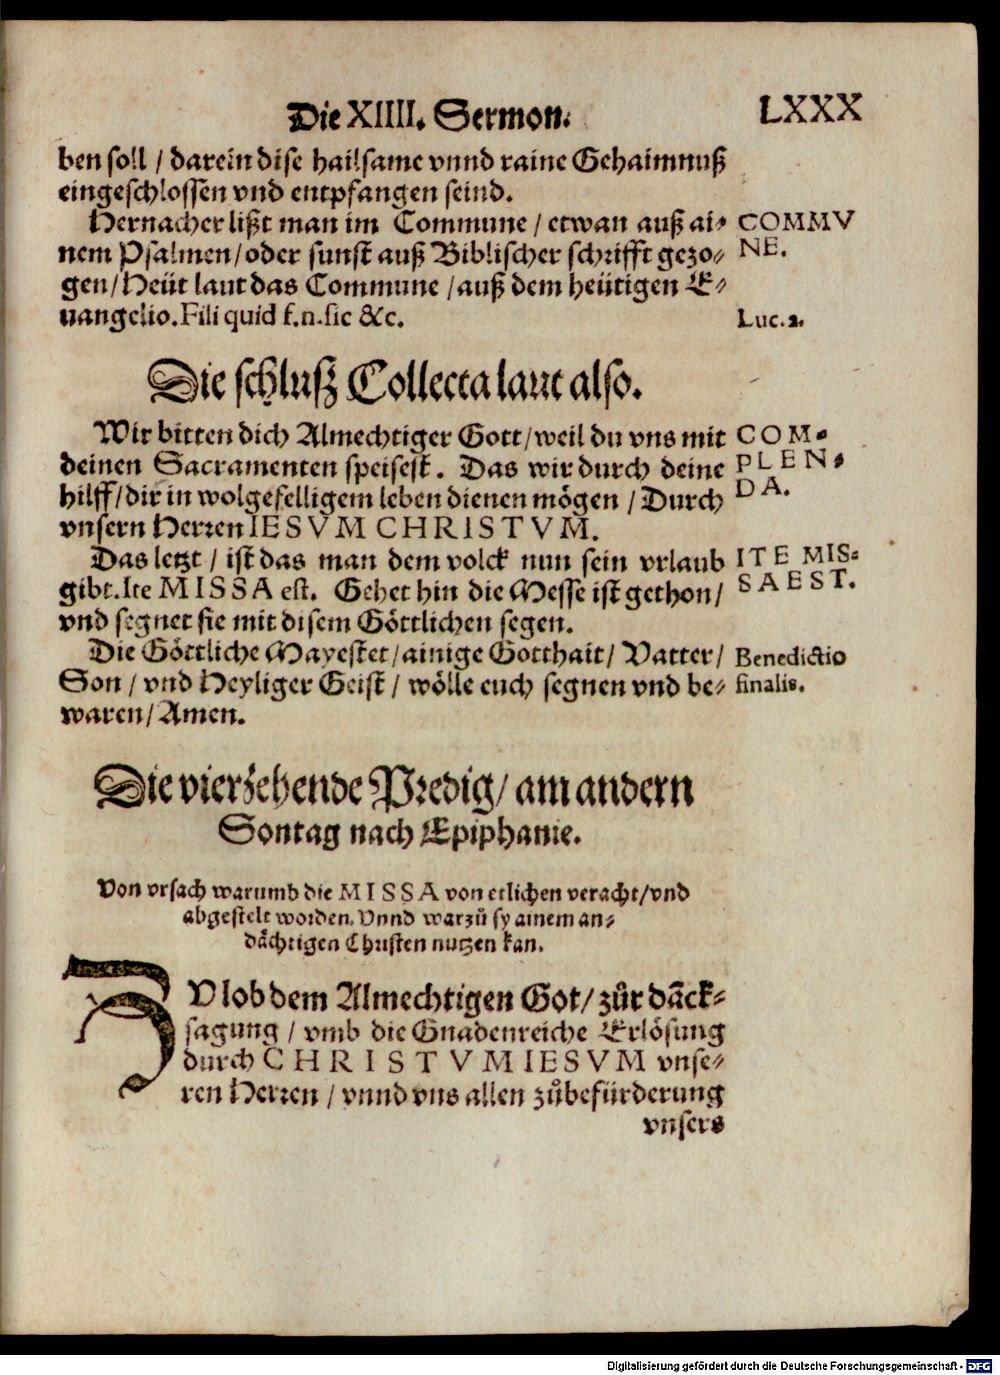 Die XIIII. Sermon. LXXX
ben soll / darein dise hailsame vnnd raine Gehaimnuß
eingeschlossen vnd entpfangen seind.
Hernacher lißt man im Commune / etwan auß ai⸗
COMMV
nem Psalmen / oder sunst auß Biblischer schrifft gezo⸗
NE.
gen / Heüt laut das Commune / auß dem heütigen E⸗
uangelio. Fili quid f.n.sic &c.
Luc. 2.
Die schluß Collecta laut also.
Wir bitten dich Almechtiger Gott / weil du vns mit
COM⸗
deinen Sacramenten speisest. Das wir durch deine
PLEN⸗
hilff / dir in wolgefelligem leben dienen mögen / Durch
DA.
vnsern Herren IESVM CHRISTVM.
Das letzt / ist das man dem volck nun sein vrlaub
ITE MIS⸗
gibt. Ite MISSA est. Gehet hin die Messe ist gethon /
SA EST.
vnd segnet sie mit disem Göttlichen segen.
Die Göttliche Mayestet / ainige Gotthait / Vatter /
Benedictio
Son / vnd Heyliger Geist / wölle euch segnen vnd be⸗
finalis.
waren / Amen.
Die vierzehende Predig / am andern
Sontag nach Epiphanie.
Von vrsach warumb die MISSA von etlichen veracht / vnd
abgestelt worden. Vnnd warzů sy ainem an⸗
dächtigen Christen nutzen kan.
ZV lob dem Almechtigen Got / zůr dãck⸗
sagung / vmb die Gnadenreiche Erlösung
durch CHRISTVM IESVM vnse⸗
ren Herren / vnnd vns allen zůbefürderung
vnsers
Digitalisierung gefördert durch die Deutsche Forschungsgemeinschaft - DFG